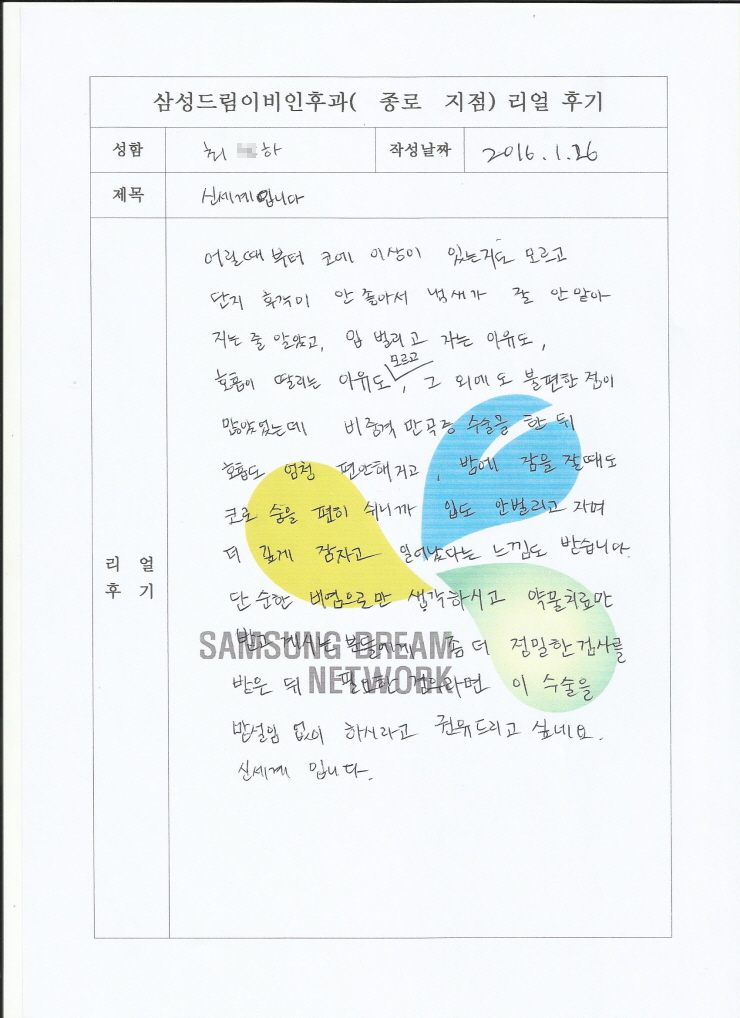 삼성드림이비인후과( 종로 지점) 리얼 후기
성함 최 하 작성날짜 2016.1.26
제목 신세계입니다
어릴때부터 코에 이상이 있는지도 모르고
단지 후각이 안 좋아서 냄새가 잘 안 맡아
지는 줄 알았고, 입 벌리고 자는 이유도,
호흡이 딸리는 이유도 모르고, 그 외에도 불편한 점이
많았었는데 비중격 만곡증 수술을 한 뒤
호흡도 엄청 편안해지고, 밤에 잠을 잘때도
코로 숨을 편히 쉬니까 입도 안벌리고 자며
더 깊게 잠자고 일어났다는 느낌도 받습니다.
단순한 비염으로만 생각하시고 약물치료만
받고 계시는 분들에게 좀 더 정밀한 검사를
받은 뒤 필요한 경우라면 이 수술을
망설임 없이 하시라고 권유드리고 싶네요.
신세계 입니다.
리얼
후기
SAMSUNG DREAM
NETWORK